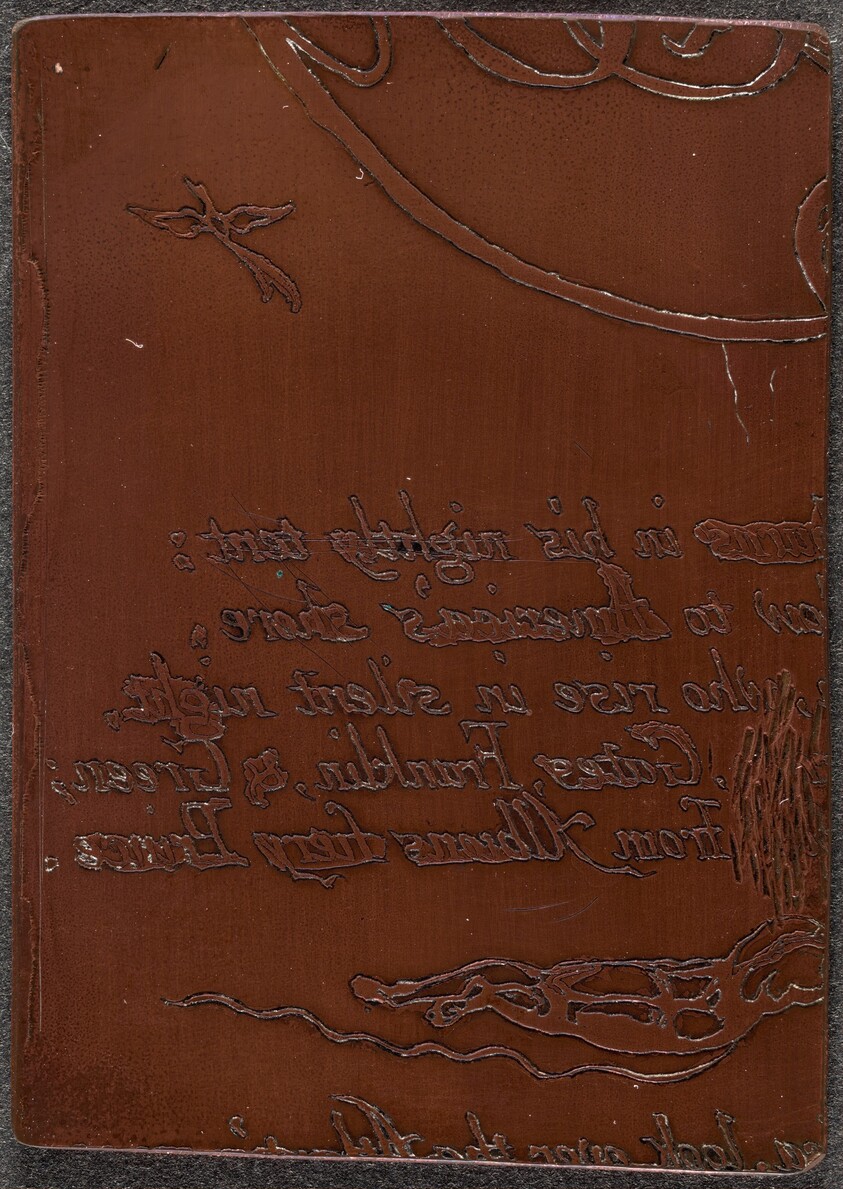 burns in his nightly tent:
to America's shore:
who rise in silent night,
Gates, Franklin, & Green;
From Albions fiery Prince
look over the Atlantic